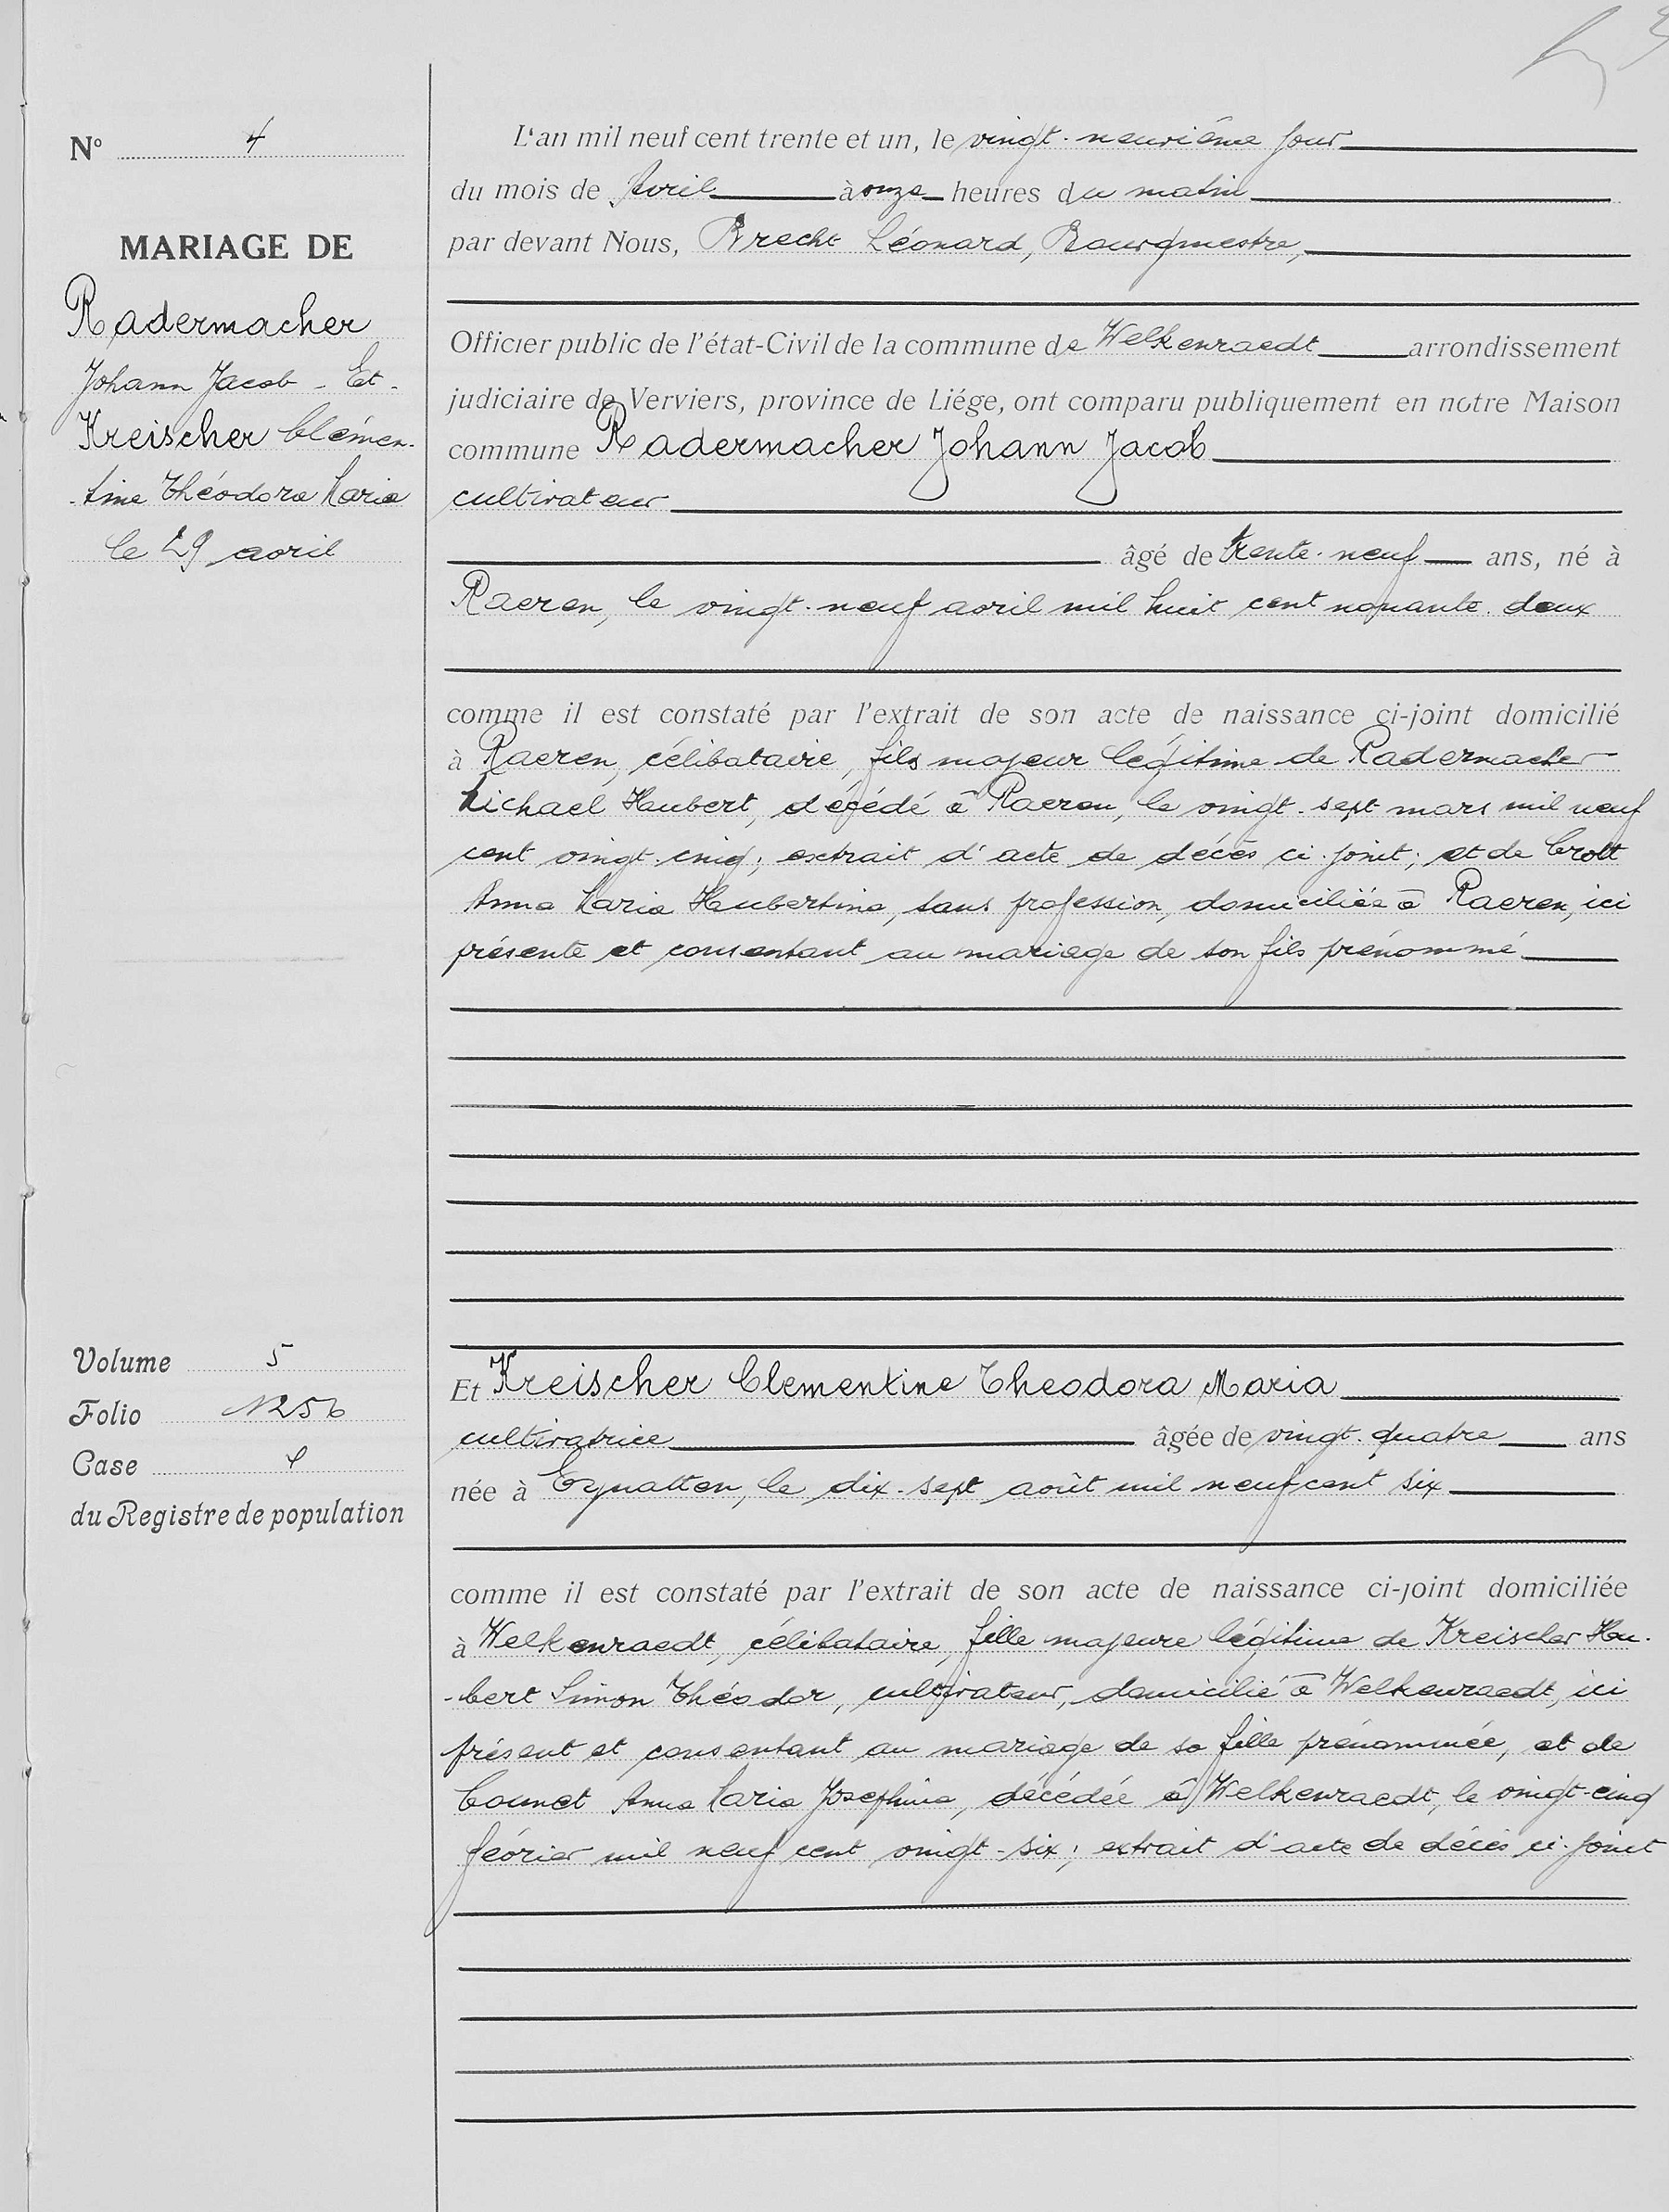 N° 4
MARIAGE DE
Radermacher
Johann Jacob - Et -
Kreischer Clémen-
-tine Théodora Maria
le 29 avril
Volume 5
Folio 1256
Case
du Registre de population
L'an mil neuf cent trente et un, le vingt-neuvième jour
du mois de Avril à onze heures du matin
par devant Nous, Brecht Léonard, Bourgmestre,
Officier public de l'état-Civil de la commune de Welkenraedt arrondissement
judiciaire de Verviers, province de Liége, ont comparu publiquement en notre Maison
commune Radermacher Johann Jacob
cultivateur
âgé de trente-neuf ans, né à
Raeren, le vingt-neuf avril mil huit cent nonante-deux
comme il est constaté par l'extrait de son acte de naissance ci-joint domicilié
à Raeren, célibataire, fils majeur légitime de Radermacher
Michael Hubert, décédé à Raeren, le vingt-sept mars mil neuf
cent vingt-cinq; extrait d'acte de décès ci-joint; et de Crott
Anna Maria Hubertina, sans profession, domiciliée à Raeren, ici
présente et consentant au mariage de son fils prénommé
Et Kreischer Clementine Theodora Maria
cultivatrice âgée de vingt-quatre ans
née à Eynatten, le dix-sept août mil neuf cent six
comme il est constaté par l'extrait de son acte de naissance ci-joint domiciliée
à Welkenraedt, célibataire, fille majeure légitime de Kreischer Hu-
-bert Simon Théodor, cultivateur, domicilié à Welkenraedt, ici
présent et consentant au mariage de sa fille prénommée, et de
Counet Anna Maria Josephina, décédée à Welkenraedt, le vingt-cinq
février mil neuf cent vingt-six; extrait d'acte de décès ci-joint